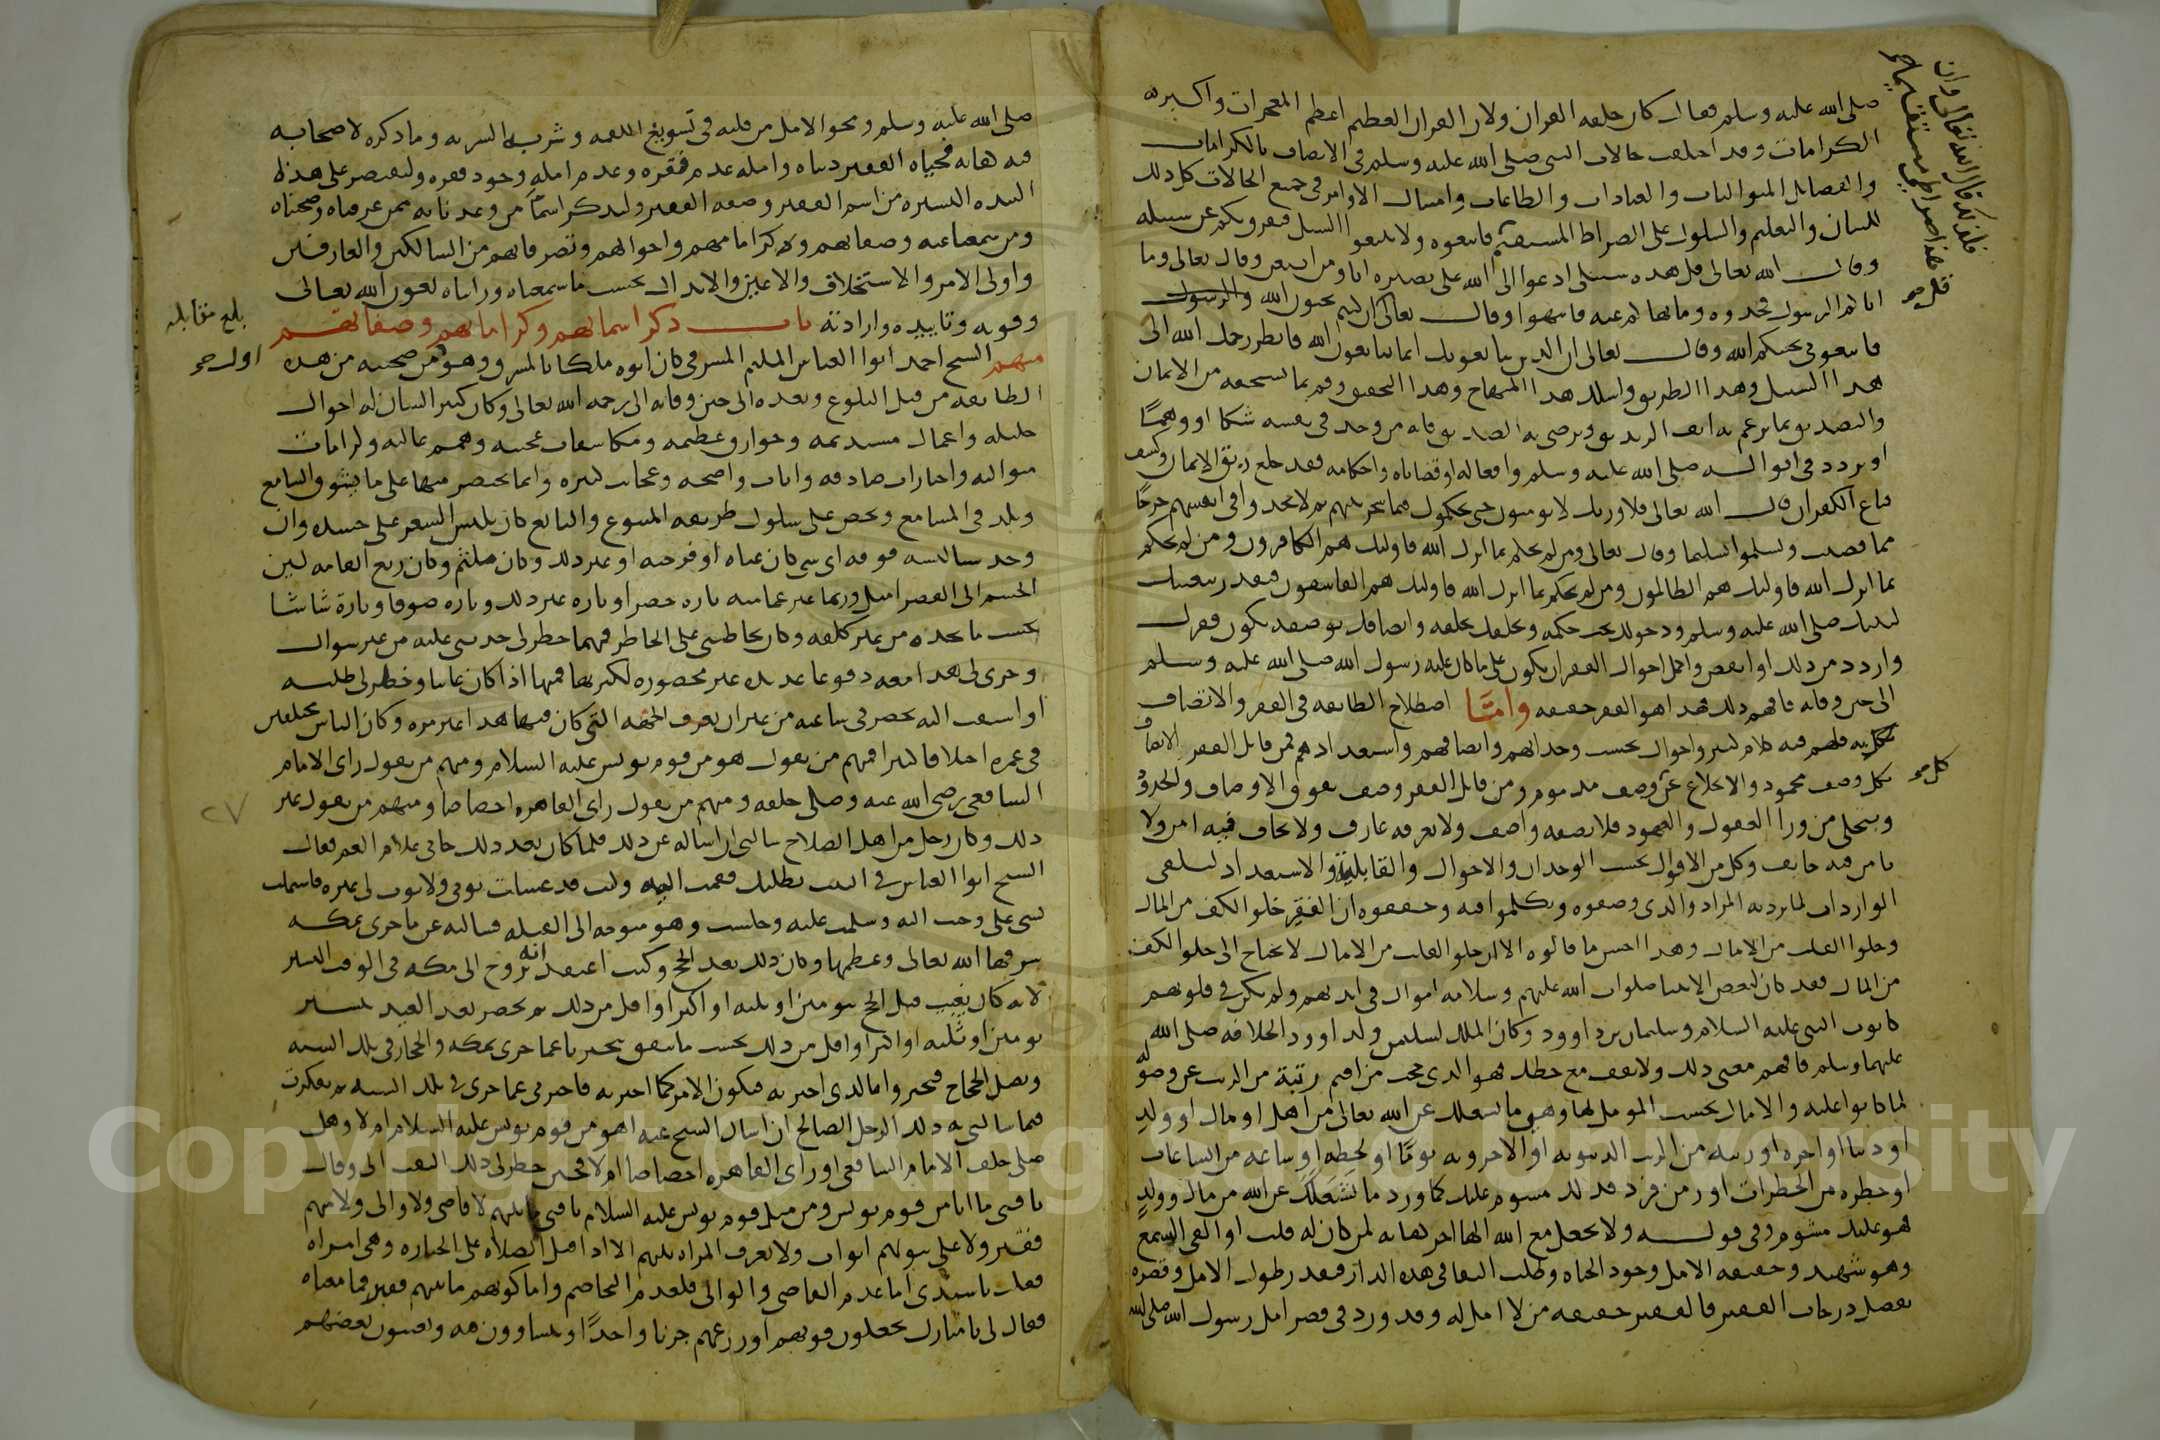 صلى الله عليه وسلم فقال كان خلقه القرآن ولان القرآن العظيم اعظم المعجزات واكبر
الكرامات وقد اختلف حالات النبي صلى الله عليه وسلم في الاتصاف بالكرامات
والفضائل المتواليات والعبادات والطاعات وامتثال الاوامر في جميع الحالات كل ذلك
للبيان والتعليم والسلوك على الصراط المستقيم فاتبعوه ولا تتبعوا السبل فتفرق بكم عن سبيله
وقال الله تعالى قل هذه سبيلي ادعوا الى الله على بصيرة انا ومن اتبعني وقال تعالى وما
اتاكم الرسول فخذوه وما نهاكم عنه فانتهوا وقال تعالى ان كنتم تحبون الله
فاتبعوني يحببكم الله وقال تعالى ان الذين يبايعونك انما يبايعون الله فانظر رحمك الله الى
هذا السبيل وهذا الطريق واسلك هذا المنهاج وهذا التحقيق وقم بما تستحقه من الايمان
والتصديق بما تزعم به انف الزنديق وترضي به الصديق فانه من وجد في نفسه شكا او وهما
او تردد في اقواله صلى الله عليه وسلم وافعاله او قضاياه واحكامه فقد خلع ربق الايمان وكشف
قناع الكفران قال الله تعالى فلا وربك لا يؤمنون حتى يحكموك فيما شجر بينهم ثم لا يجدوا في انفسهم حرجا
مما قضيت ويسلموا تسليما وقال تعالى ومن لم يحكم بما انزل الله فاولئك هم الكافرون ومن لم يحكم
بما انزل الله فاولئك هم الظالمون ومن لم يحكم بما انزل الله فاولئك هم الفاسقون فبقدر
لنبيك صلى الله عليه وسلم ودخولك تحت حكمه وتخلقك بخلقه واتصافك بوصفه يكون فقرك
وازدد من ذلك او انقص واجل احوال الفقر ان يكون على ما كان عليه رسول الله صلى الله عليه وسلم
الى حين وفاته فافهم ذلك فهذا هو الفقر حقيقة واما اصطلاح الطائفة في الفقر والاتصاف
فلهم فيه كلام كثير واحوال بحسب وجدانهم واتصافهم واستعدادهم فمن قائل الفقر الاتصاف
بكل وصف محمود والانخلاع عن كل وصف مذموم ومن قائل الفقر وصف يفوق الاوصاف والحدود
ويتجلى من وراء العقول والعهود فلا يصفه واصف ولا يعرفه عارف ولا يخاف فيه امر ولا
يامن فيه خائف وكل من الاقوال بحسب الوجدان والاحوال والقابلية والاستعداد لتلقي
الواردات لما يرد به المراد والذي وصفوه وتكلموا فيه وحققوه ان الفقر خلو الكف من المال
وخلوا القلب من الامال وهذا احسن ما قالوه الا ان خلو القلب من الامال لا يحتاج الى خلو الكف
من المال فقد كان لبعض الانبياء صلوات الله عليهم وسلامه اموال في ايديهم ولم تكن في قلوبهم
كايوب النبي عليه السلام وسليمان بن داوود وكان الملك لسليمن ولداوود الخلافة صلى الله
عليهما وسلم فافهم معنى ذلك ولا تقف مع حظك فهو الذي حجب
لما كانوا عليه والامال بحسب المؤمل لها وهي ما شغلك عن الله تعالى من اهل او مال او ولد
او دنيا او اخرة او رتبة من الرتب الدنيوية او الاخروية يوما او لحظة او ساعة من الساعات
او خطرة من الخطرات او رمز فرد فذلك مسوم عليك كما ورد ما شغلك عن الله من مال وولد
هو عليك مشوم وفي قوله ولا تجعل مع الله الها اخر نهاية لمن كان له قلب او القى السمع
وهو شهيد وحقيقة الامل وجود الحياة وطلب البقا في هذه الدار فبقدر طول الامل وقصره
تفضل درجات الفقير فالفقير حقيقة من لا امل له وقد ورد في قصر امل رسول الله صلى الله
صلى الله عليه وسلم ومحو الامل من قلبه في تسويغ اللقمة وشرب الشربة وما ذكره لاصحابه
فيه نهاية فحياة الفقير دنياه وامله عدم فقره وعدم امله وجود فقره ولنقتصر على هذه
النبذة اليسيرة من اسم الفقير وصفة الفقير ولنذكر اسما من وعدنا به ممن عرفناه وصحبناه
ومن سمعنا عنه وصفاتهم وكراماتهم واحوالهم وتصرفاتهم من السالكين والعارفين
واولي الامر والاستخلاق والاعين والابدال بحسب ما سمعناه ورايناه بعون الله تعالى
وقوته وتاييده وارادته باب ذكر اسمائهم وكراماتهم وصفاتهم
منهم الشيخ احمد ابوا العباس الملثم المشرقي كان ابوه ملكا بالمشرق وهو ممن صحبته من هذه
الطائفة من قبل البلوغ وبعده الى حين وفاته الى رحمة الله تعالى وكان كبير الشان له احوال
جليلة واعمال مستديمة وخوارق عظيمة ومكاشفات عجيبة وهمم عالية وكرامات
متوالية واخبارات صادقة وايات واضحة وعجائب كثيرة وانما نختصر منها على ما يشوق السامع
ويلذ في المسامع ويحض على سلوك طريقة المتبوع والتابع كان يلبس الشعر على جسده وان
وجد شيا لبسه فوقه اي شي كان عباه او فرجية او غير ذلك وكان ملثم وكان ربع القامة لين
الجسم الى القصر اميل وربما غير عمامته تارة خضرا وتارة غير ذلك وتارة صوفا وتارة شاشا
بحسب ما يجده من غير كلفة وكان يخاطبني على الخاطر فمهما خطر لي حدثني عليه من غير سوال
وجرى لي هذا معه دفوعا عديدة غير محصورة لكثرتها فمنها اذا كان غايبا وخطر لي طلبه
او اشتقت اليه يحضر في ساعة من غير ان يعرف الجهة التي كان فيها هذا غير مرة وكان الناس مختلفين
في عمره اختلافا كثيرا فمنهم من يقول هو من قوم يونس عليه السلام ومنهم من يقول راى الامام
الشافعي رضي الله عنه وصلى خلفه ومنهم من يقول راى القاهرة اخصاصا ومنهم من يقول غير
ذلك وكان رجل من اهل الصلاح سالني ان اساله عن ذلك فلما كان بعد ذلك جاني غلام العم فقال
الشيخ ابوا العباس في البيت يطلبك فقمت اليه وكنت قد غسلت ثوبي ولا ثوب لي غيره فاشتملت
بشي على وجئت اليه وسلمت عليه وجلست وهو متوجه الى القبلة فسالته عن ما جرى بمكة
شرفها الله تعالى وعظمها وكان ذلك بعد الحج وكنت اعتقد انه يروح الى مكة في الوقت اليسير
لانه كان يغيب قبل الحج يومين او ثلثة او اكثر او اقل من ذلك ثم يحضر بعد العيد بيسير
يومين او ثلثة او اكثر او اقل من ذلك بحسب ما يتفق يخبرنا عما جرى بمكة والحجاز في تلك السنة
ويصل الحجاج فيخبروا بالذي اخبر به فيكون الامر كما اخبر به فاخبرني عما جرى في تلك السنة ثم تفكرت
فيما سالني به ذلك الرجل الصالح ان اسال الشيخ عنه اهو من قوم يونس عليه السلام ام لا وهل
صلى خلف الامام الشافعي او راى القاهرة اخصاصا ام لا فحين خطر لي ذلك التفت الي وقال
يا فتى ما انا من قوم يونس ومن مثل قوم يونس عليه السلام يا فتى ما بينهم لا قاضي ولا والي ولا منهم
فقير ولا على بيوتهم ابواب ولا يعرف المراة بينهم الا اذا قيل الصلاة على الجنازة وهي امراة
فقلت يا سيدي اما عدم القاضي والوالي فلعدم التخاصم واما كونهم ما بينهم فقير فما معناه
فقال لي يا مبارك يجعلون قوتهم او زرعهم جرنا واحدا ويتساوون فيه ويصون بعضهم
بلغ مقابلة